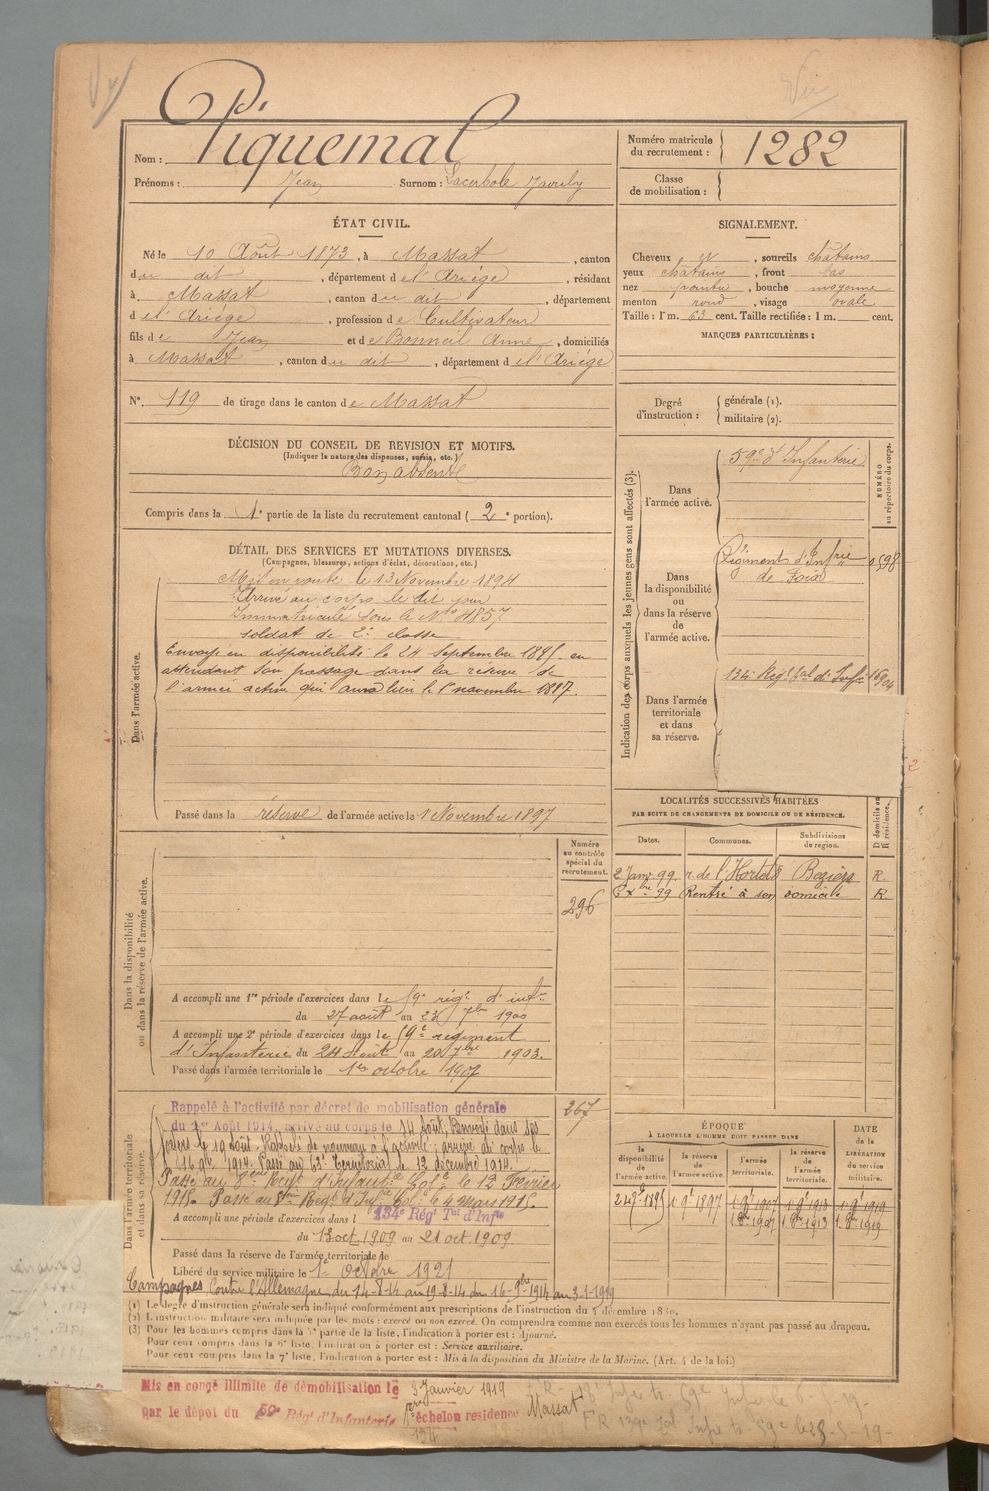 Piquemal
Nom :
Prénoms : Jean Surnom : Lacerbole
Numéro matricule du recrutement : 1282
Classe de mobilisation :
ÉTAT CIVIL.
Né le 10 Août 1873, à Massat, canton
du dit, département de l'Ariège, résidant
à Massat, canton du dit, département
de l'Ariège, profession de Cultivateur
fils de Jean et de Bonneil Anne, domiciliés
à Massat, canton du dit, département de l'Ariège
N° 119 de tirage dans le canton de Massat
SIGNALEMENT.
Cheveux et, sourcils châtains
yeux châtains, front bas
nez pointu, bouche moyenne
menton rond, visage ovale
Taille : 1 m. 63 cent. Taille rectifiée : 1 m. cent.
MARQUES PARTICULIÈRES :
Degré d'instruction : générale (1).
militaire (2).
DÉCISION DU CONSEIL DE REVISION ET MOTIFS.
(Indiquer la nature des dispenses, sursis, etc.)
Bon absent
Compris dans la 1e partie de la liste du recrutement cantonal (2e portion).
DÉTAIL DES SERVICES ET MUTATIONS DIVERSES.
(Campagnes, blessures, actions d'éclat, décorations, etc.)
Dans l'armée active.
Mis en route le 13 Novembre 1894
Arrivé au corps le dit jour
Immatriculé sous le No 4857
soldat de 2e classe
Envoyé en disponibilité le 24 septembre 1895 en
attendant son passage dans la réserve de
l'armée active qui aura lieu le 1er novembre 1897.
Passé dans la réserve de l'armée active le 1 Novembre 1897
Indication des corps auxquels les jeunes gens sont affectés (3).
NUMÉRO au répertoire du corps.
Dans l'armée active.
59e d'Infanterie
Dans la disponibilité ou dans la réserve de l'armée active.
Régiment d'Infrie
de Foix
Dans l'armée territoriale et dans sa réserve.
134e Régt tal d'Infie
LOCALITÉS SUCCESSIVES HABITÉES
PAR SUITE DE CHANGEMENTS DE DOMICILE OU DE RÉSIDENCE.
Dates. Communes. Subdivisions de région. D domicile ou R résidence.
2 Janv 99 r. de l' Béziers R.
Xbre 99 Rentré à son domicile R.
Dans la disponibilité ou dans la réserve de l'armée active.
Numéro au contrôle spécial du recrutement.
296
A accompli une 1re période d'exercices dans le 59e régt d'infie
du 27 août au 23 7bre 1900
A accompli une 2e période d'exercices dans le 59e régiment
d'Infanterie du 24 Août au 20 7bre 1903.
Passé dans l'armée territoriale le 1er octobre 1907
267
Dans l'armée territoriale et dans sa réserve.
Rappelé à l'activité par décret de mobilisation générale
du 1er Août 1914, arrivé au corps le 14 Août, Renvoyé dans ses
foyers le 19 Août. Rappelé de nouveau à l'activité, arrivé au corps le
16 9bre 1914. Passé au Territorial le 12 décembre 1914.
Passé au 8eme Regt d'Infantie Colle le 12 Février
1915. Passé au Regt d'Infie Colle le 4 Mars 1915.
A accompli une période d'exercices dans l 134e Régt Tal d'Infie
du 13 oct 1909 au 21 oct 1909
Passé dans la réserve de l'armée territoriale le
Libéré du service militaire le 1er Octobre 1921
Campagnes Contre l'Allemagne du 14-8-14 au 19-8-14 du 16-9bre 1914 au 3-1-1919
ÉPOQUE
À LAQUELLE L'HOMME DOIT PASSER DANS
la disponibilité de l'armée active. la réserve de l'armée active. l'armée territoriale. la réserve de l'armée territoriale.
DATE de la LIBÉRATION du service militaire.
24 7bre 1895 1 9bre 1897 1 9bre 1907 1 9bre 1913 1 9bre 1919
1 8bre 1907 1 8bre 1913 1 8bre 1919
(1) Le degré d'instruction générale sera indiqué conformément aux prescriptions de l'instruction du 5 décembre 1889.
(2) L'instruction militaire sera indiquée par les mots : exercé ou non exercé. On comprendra comme non exercés tous les hommes n'ayant pas passé au drapeau.
(3) Pour les hommes compris dans la 5e partie de la liste, l'indication à porter est : Ajourné.
Pour ceux compris dans la 6e liste, l'indication à porter est : Service auxiliaire.
Pour ceux compris dans la 7e liste, l'indication à porter est : Mis à la disposition du Ministre de la Marine. (Art. 4 de la loi.)
Mis en congé illimité de démobilisation le 3 Janvier 1919
par le dépôt du 59e Régt d'Infanterie
échelon résidence Massat
134